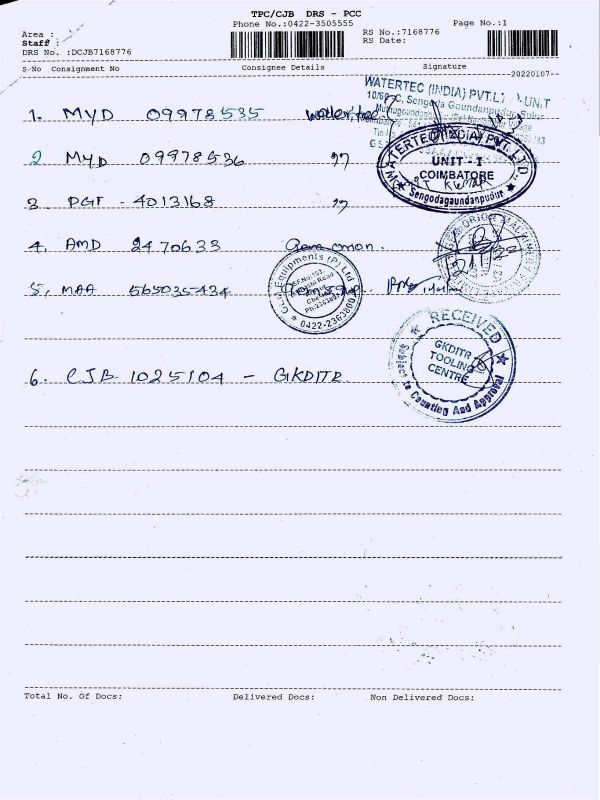 TPC/CJB DRS - PCC
Phone No.:0422-3505555
Page No.:1
Area :
Staff :
RS No.:7168776
RS Date:
DRS No. :DCJB7168776
S/No Consignment No Consignee Details Signature
--20220107--
WATERTEC (INDIA) PVT.LT UNIT
1. MYD 09978535 Watertec
2 MYD 09978536 "
WATERTEC (INDIA) PVT. LTD.
UNIT - I
COIMBATORE
Sengodagaundanpudur
3. PGT - 4013168 "
4. AMD 2470633
5. MAA 565035434
Equipments (P) Ltd
0422-2363800
RECEIVED
GKDITR
TOOLING
CENTRE
Subject to Counting And Approval
6. CJB 1025104 - GKDITR
Total No. Of Docs: Delivered Docs: Non Delivered Docs: